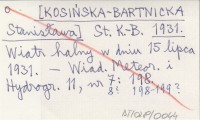 [KOSIŃSKA-BARTNICKA
Stanisława] St. K-B. 1931.
Wiatr halny w dniu 15 lipca
1931. — Wiad. Meteor. i
Hydrogr. 11, nr 7: 198.
8: 198-199?